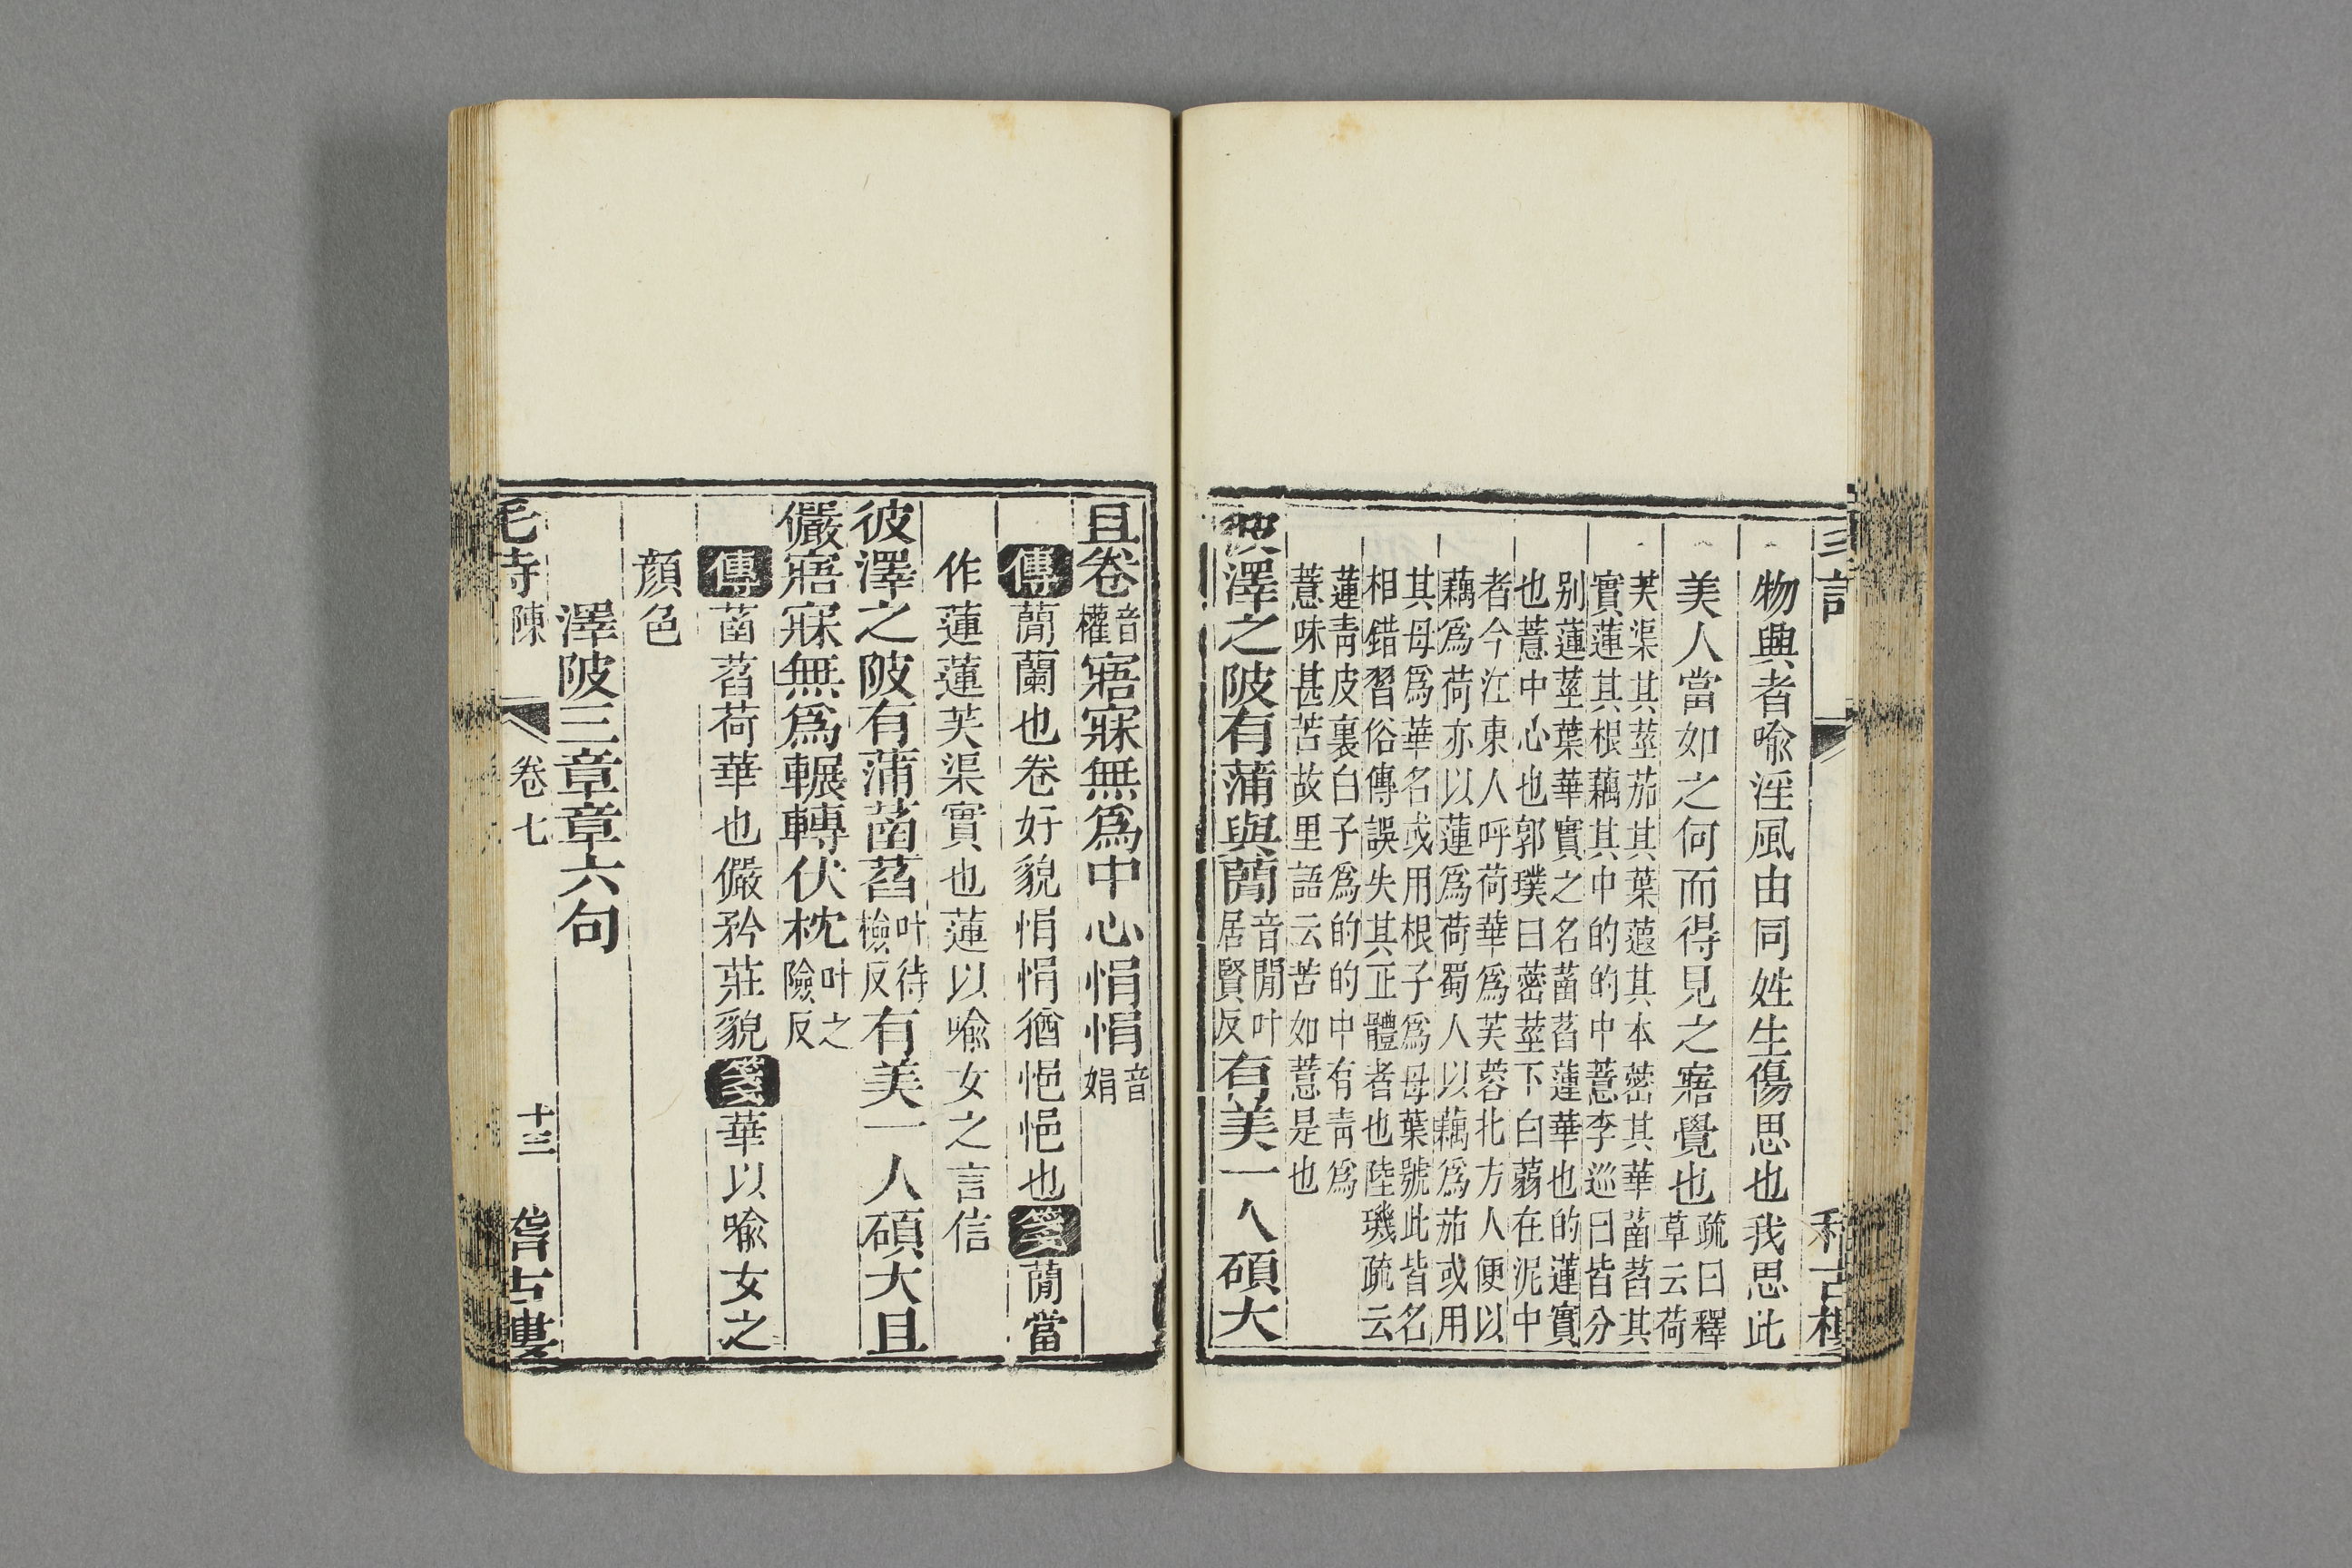 物興者喻淫風由同姓生傷思也我思此
美人當如之何而得見之寤覺也疏曰釋草云荷
芙渠其莖茄其葉蕸其本蔤其華菡萏其
實蓮其根藕其中的的中薏李巡曰皆分
别蓮莖葉華實之名菡萏蓮華也的蓮實
也薏中心也郭璞曰蔤莖下白蒻在泥中
者今江東人呼荷華爲芙蓉北方人便以
藕爲荷亦以蓮爲荷蜀人以藕爲茄或用
其母爲華名或用根子爲母葉號此皆名
相錯習俗傳誤失其正體者也陸璣疏云
蓮靑皮裏白子爲的的中有靑爲
薏味甚苦故里語云苦如薏是也
彼澤之陂有蒲與蕑音閒叶居賢反有美一人碩大
且卷音權寤寐無爲中心悁悁音娟
傳蕑蘭也卷好貌悁悁猶悒悒也箋蕑當
作蓮蓮芙渠實也蓮以喻女之言信
彼澤之陂有蒲菡萏叶待檢反有美一人碩大且
儼寤寐無爲輾轉伏枕叶之險反
傳菡萏荷華也儼矜莊貌箋華以喻女之
顔色
澤陂三章章六句
毛詩陳 卷七 十三 稽古樓